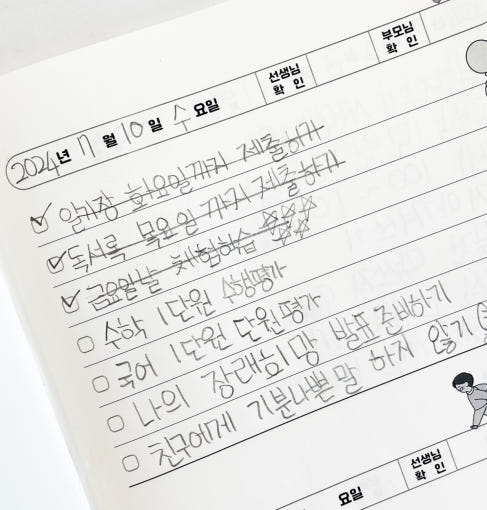 선생님 확 인
부모님 확 인
2024년 7월 10일 수요일
일기장 화요일까지 제출하기
독서록 목요일까지 제출하기
금요일날 체험학습 ☆☆☆☆☆
수학 1단원 수행평가
국어 1단원 단원평가
나의 장래희망 발표 준비하기
친구에게 기분나쁜말 하지 않기
요일
선생님 확 인